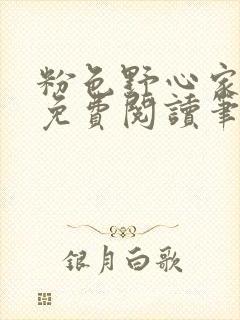 粉色野心家
免費閱讀筆
銀月白歌